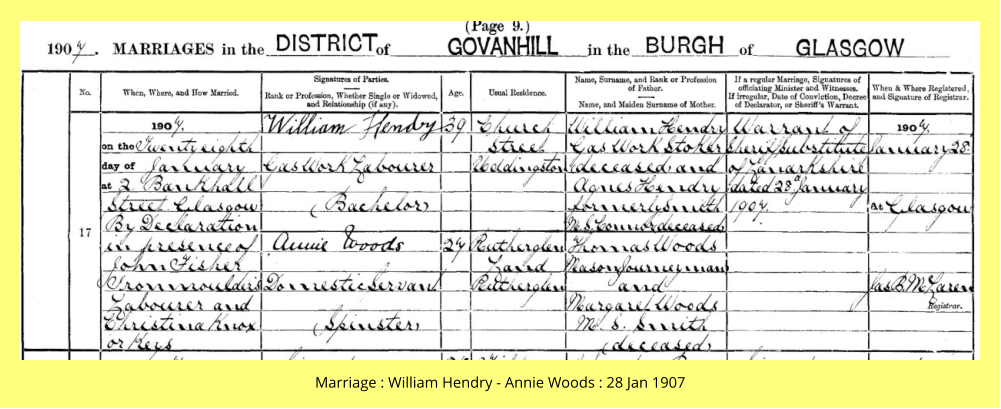 (Page 9.)
1907. MARRIAGES in the DISTRICT of GOVANHILL in the BURGH of GLASGOW
No.
When, Where, and How Married.
Signatures of Parties.
Rank or Profession, Whether Single or Widowed,
and Relationship (if any).
Age.
Usual Residence.
Name, Surname, and Rank or Profession
of Father.
Name, and Maiden Surname of Mother.
If a regular Marriage, Signatures of
officiating Minister and Witnesses.
If irregular, Date of Conviction, Decree
of Declarator, or Sheriff's Warrant.
When & Where Registered,
and Signature of Registrar.
17
1907.
on the Twenty eighth
day of January
at 2 Bankhall
Street Glasgow
By Declaration
in presence of
John Fisher
Ironmoulders
Labourer and
Christina Knox
or Keys
William Hendry
Gas Work Labourer
(Bachelor)
Annie Woods
Domestic Servant
(Spinster)
39
27
Church
Street
Uddingston
Rutherglen
Land
Rutherglen
William Hendry
Gas Work Stoker
deceased and
Agnes Hendry
formerly Smith
M.S. Connor deceased
Thomas Woods
Mason Journeyman
and
Margaret Woods
M.S. Smith
(deceased)
Warrant of
Sheriff Substitute
of Lanarkshire
dated 28th January
1907.
1907.
January 28
At Glasgow
Jas R McLaren
Registrar.
Marriage : William Hendry - Annie Woods : 28 Jan 1907